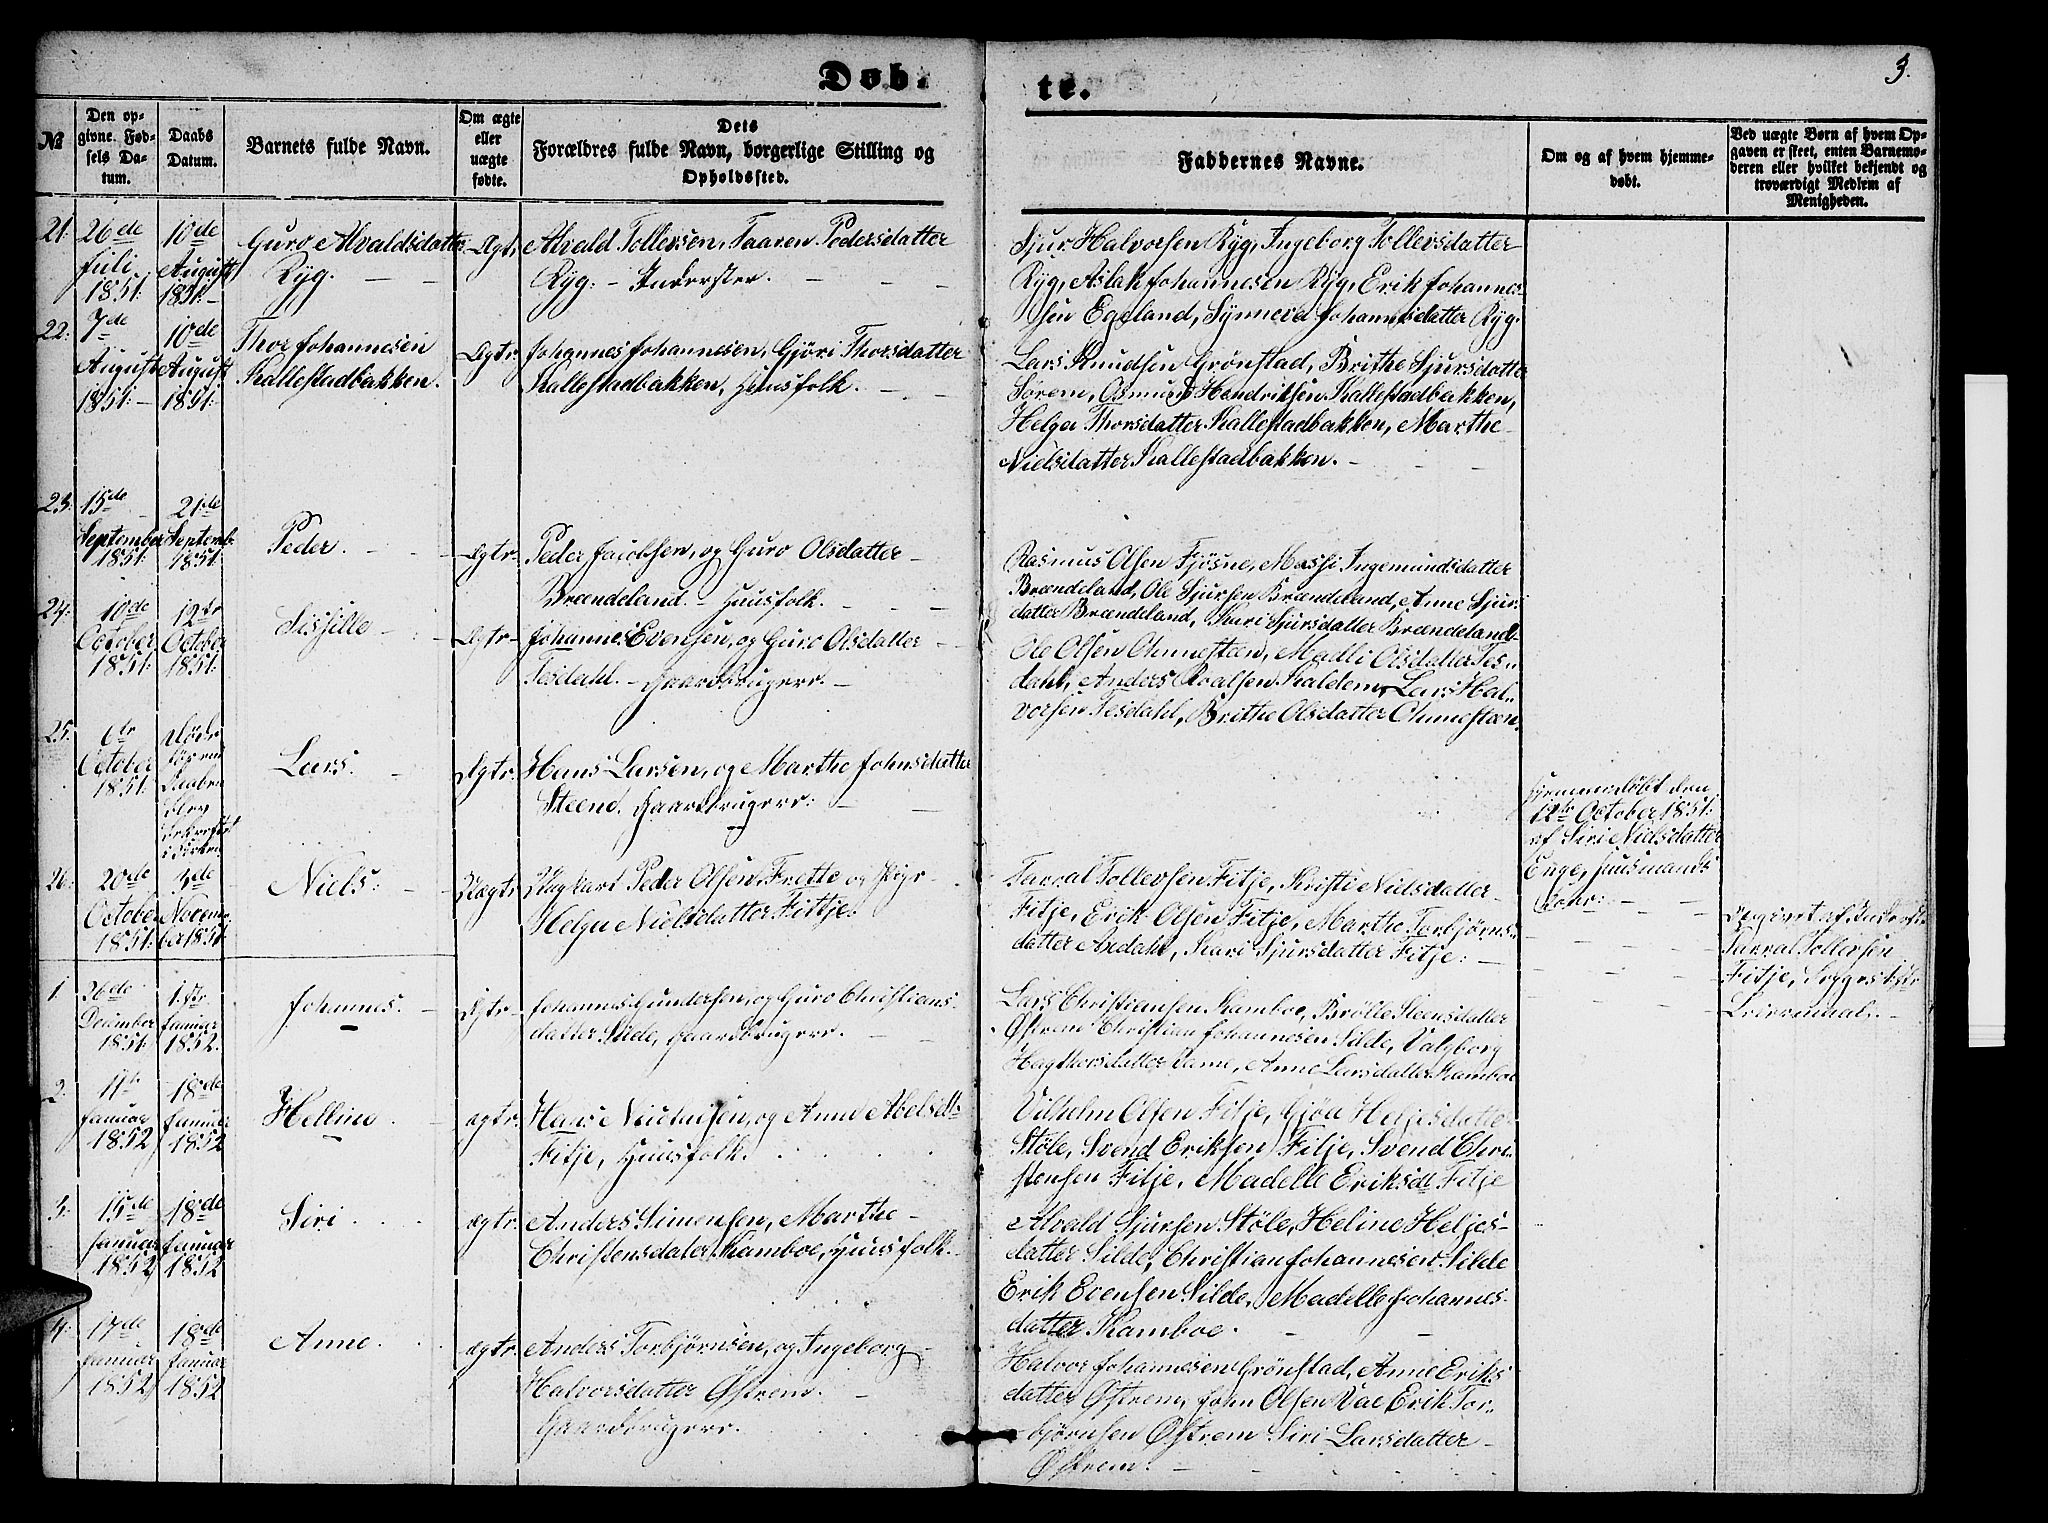 Døb-
te.
3.
№
Den op-
givne Fød-
sels Da-
tum.
Daabs
Datum.
Barnets fulde Navn.
Om ægte
eller
uægte
fødte.
Dets
Forældres fulde Navn, borgerlige Stilling og
Opholdssted.
Faddernes Navne.
Om og af hvem hjemme-
døbt.
Ved uægte Børn af hvem Op-
gaven er skeet, enten Barnemo-
deren eller hvilket bekjendt og
troværdigt Medlem af
Menigheden.
21.
26de
Juli
1851.
10de
August
1851.
Guro Alvaldsdatter
Ryg.
Ægt.
Alvald Tollevsen, Taaren Pedersdatter
Ryg. - Inderster.
Sjur Halvorsen Ryg, Ingeborg Tollevsdatter
Ryg, Aslak Johannesen Ryg, Erik Johannes-
sen Egeland, Synneva Johannesdatter Ryg.
22.
7de
August
1851.
10de
August
1851.
Thor Johannesen
Skallestadbakken.
Ægtr.
Johannes Johannesen, Gjøri Thorsdatter
Skallestadbakken, Huusfolk.
Lars Knudsen Grønstad, Brithe Sjursdatter
Sørem, Osmund Hendriksen Skallestadbakken,
Helga Thorsdatter Skallestadbakken, Marthe
Nielsdatter Skallestadbakken.
23.
15de
September
1851.
21de
Septemb.
1851.
Peder.
Ægtr.
Peder Jacobsen, og Guro Olsdatter
Brændeland. - Huusfolk.
Rasmus Olsen Fjøsne, Massi Ingemundsdatter
Brændeland, Ole Sjursen Brændeland, Anne Sjurs
datter Brændeland, Kari Sjursdatter Brændeland.
24.
10de
October
1851.
12te
October
1851.
Sissille
Ægtr.
Johannes Evensen, og Guro Olsdatter
Tesdahl. - Gaardbrugere.
Ole Olsen Ohmesteen, Madli Olsdatter Tes-
dahl, Anders Roalsen Kaldem, Lars Hal-
vorsen Tesdahl, Brithe Olsdatter Ohmesteen.
25.
6te
October
1851.
Døde
før end
Daaben
blev
bekræftet
i Kirken
Lars.
Ægtr.
Hans Larsen, og Marthe Johnsdatter
Steend. Gaardbrugere.
Hjemmedøbt den
12te October 1851.
af Siri Nielsdatter
Enge, Huusmands
Kone.
26.
20de
October
1851.
3de
Novem-
ber 1851.
Niels.
Uægtr.
Ungkarl Peder Olsen Frette og Pige
Helga Nielsdatter Fittje.
Tarral Tollevsen Fitje, Kristi Nielsdatter
Fitje, Erik Olsen Fitje, Marthe Torbjørns-
datter Aredahl, Kari Sjursdatter Fitje.
Tarral Tollevsen
Fitje,
1.
26de
December
1851.
1ste
Januar
1852.
Johannes.
Ægtr.
Johannes Gundersen, og Guro Christians-
datter Silde, Gaardbrugere.
Lars Christiansen Kamboe, Brølle Steensdatter
Østrem Christian Johannesen Silde, Valgborg
Hagthorsdatter Ramme, Anne Larsdatter Kamboe
2.
11te
Januar
1852
18de
Januar
1852
Helline
ægtr.
Hans Nicolaisen, og Anne Abelsdtr
Fitje, Huusfolk.
Vilhelm Olsen Fitje, Gjøri Heljesdatter
Støle, Svend Eriksen Fitje, Svend Chri-
stensen Fitje, Madelle Eriksdtr Fitje
3.
15de
Januar
1852
18de
Januar
1852
Siri
ægtr.
Anders Simensen, Marthe
Christensdater Kamboe, Huusfolk.
Alvald Sjursen Støle, Heline Heljes-
datter Silde, Christian Johannesen Silde
Erik Evensen Silde, Madelle Johannes-
datter Kamboe.
4.
17de
Januar
1852
18de
Januar
1852
Anne
ægtr.
Anders Torbjørnsen, og Ingeborg
Halvorsdatter Østrem.
Gaardbrugere.
Halvor Johannesen Grønstad, Anne Eriks
datter Østrem, John Olsen Vae Erik Tor-
bjørnsen Østrem Siri Larsdatter
Østrem.